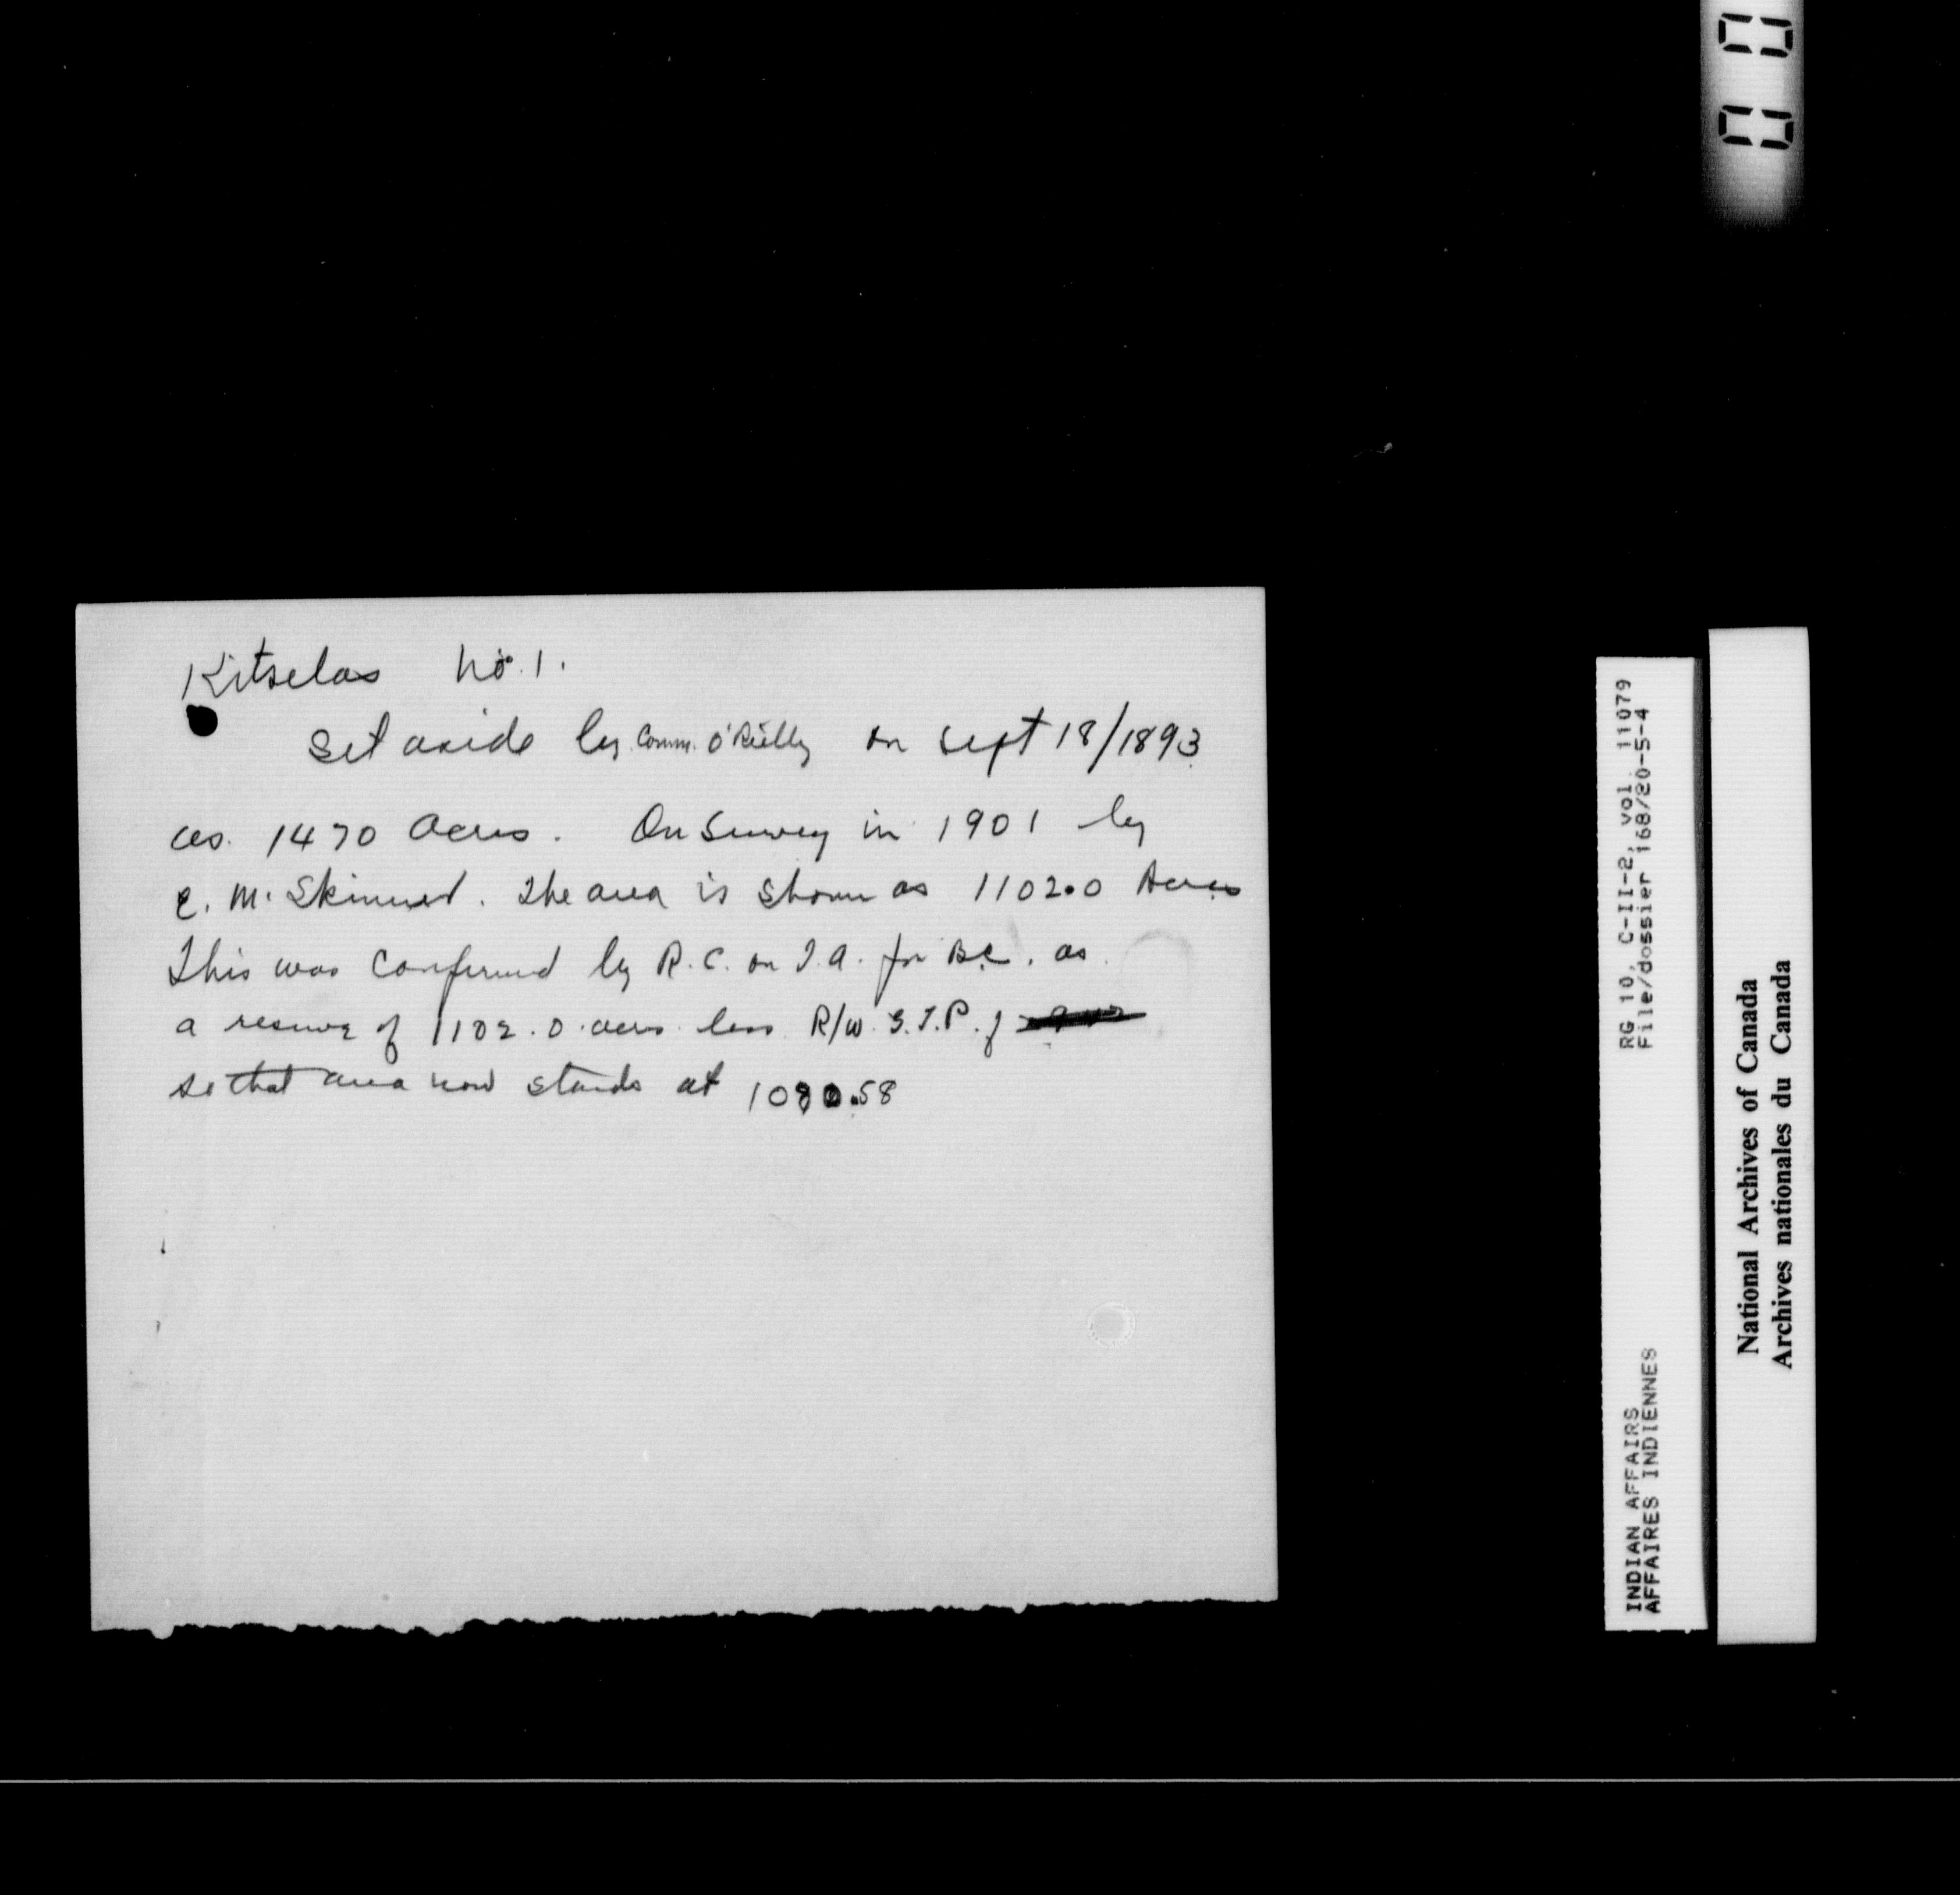 Kitselas No. 1.
Set aside by Comm. O'Reilly on Sept 18/1893
as 1470 acres. On Survey in 1901 by
E. M. Skinner. The area is shown as 1102.0 Acres
This was confirmed by R.C. on I.A. for B.C. as
a reserve of 1102.0 acres less R/W G.T.P. of
so that area now stands at 1080.58
RG 10, C-II-2, vol. 11079
File/dossier 168/20-5-4
INDIAN AFFAIRS
AFFAIRES INDIENNES
National Archives of Canada
Archives nationales du Canada